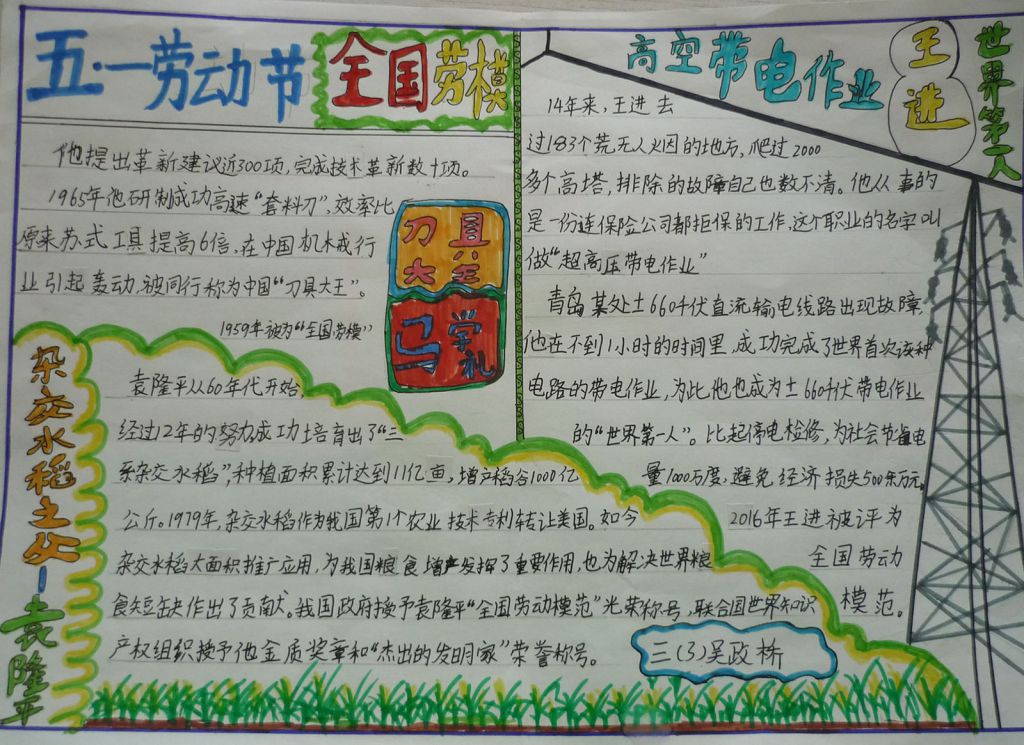 五·一劳动节
全国劳模
他提出革新建议近300项,完成技术革新数十项。
1965年他研制成功高速“套料刀”,效率比
原来苏式工具提高6倍,在中国机械行
业引起轰动,被同行称为中国“刀具大王”。
1959年被为“全国劳模”
刀具
大王
马学礼
高空带电作业
王进
世界第一人
14年来,王进 去
过183个荒无人烟的地方,爬过2000
多个高塔,排除的故障自己也数不清。他从事的
是一份连保险公司都拒保的工作,这个职业的名字叫
做“超高压带电作业”
青岛某处±660千伏直流输电线路出现故障,
他在不到1小时的时间里,成功完成了世界首次该种
电路的带电作业,为此他也成为±660千伏带电作业
的“世界第一人”。比起停电检修,为社会节省电
量1000万度,避免经济损失500余万元。
2016年王进被评为
全国劳动
模范。
杂交水稻之父—袁隆平
袁隆平从60年代开始,
经过12年的努力成功培育出了“三
系杂交水稻”,种植面积累计达到11亿亩,增产稻谷1000亿
公斤。1979年,杂交水稻作为我国第1个农业技术专利转让美国。如今
杂交水稻大面积推广应用,为我国粮食增产发挥了重要作用,也为解决世界粮
食短缺作出了贡献。我国政府授予袁隆平“全国劳动模范”光荣称号,联合国世界知识
产权组织授予他金质奖章和“杰出的发明家”荣誉称号。
三(3)吴政桥